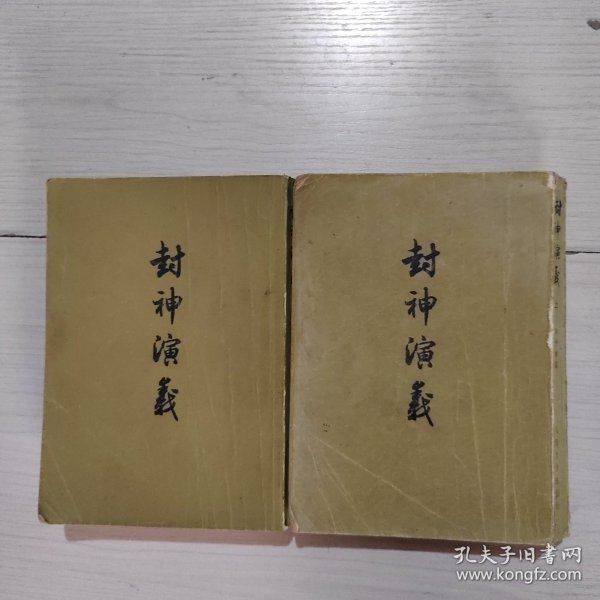 封神演義
封神演義
封神演義 上
孔夫子旧书网
www.kongfz.com